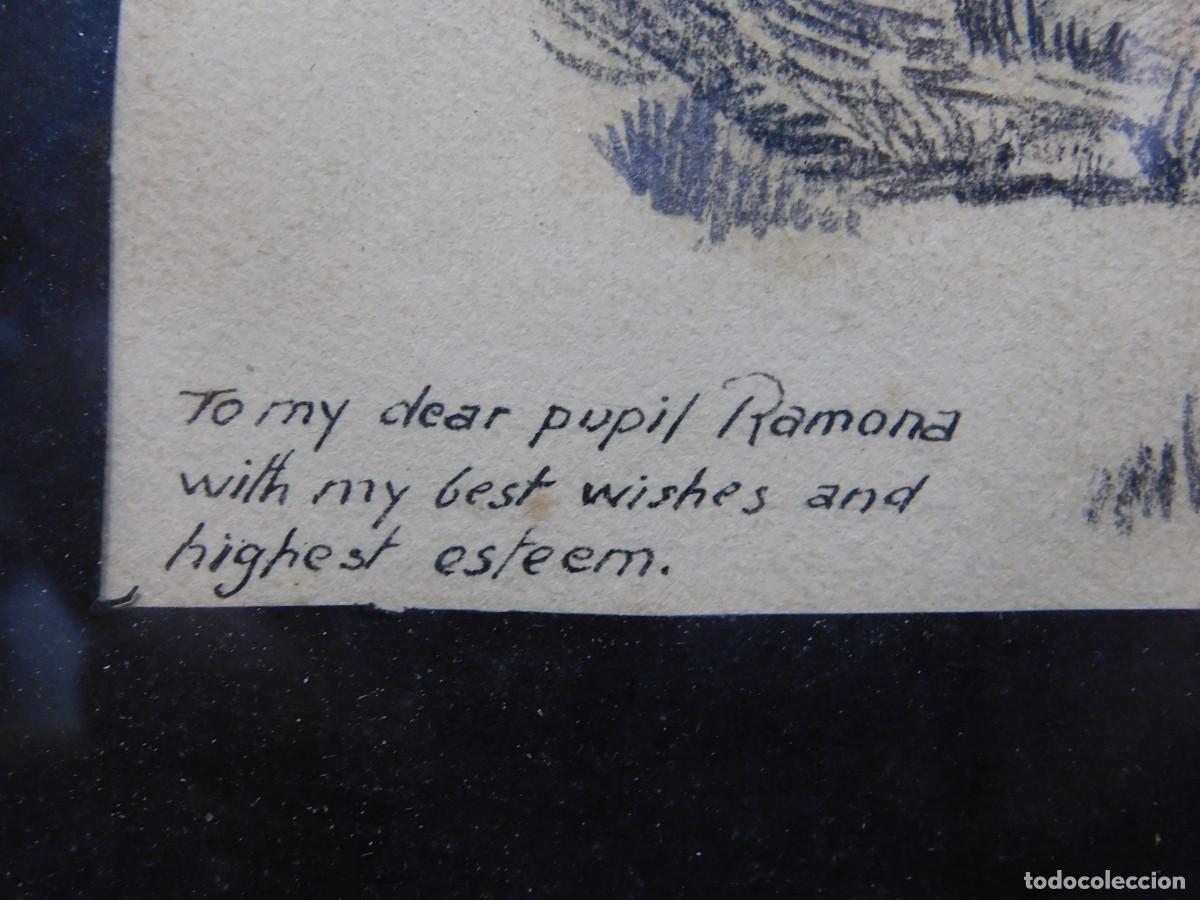 To my dear pupil Ramona
with my best wishes and
highest esteem.
todocoleccion